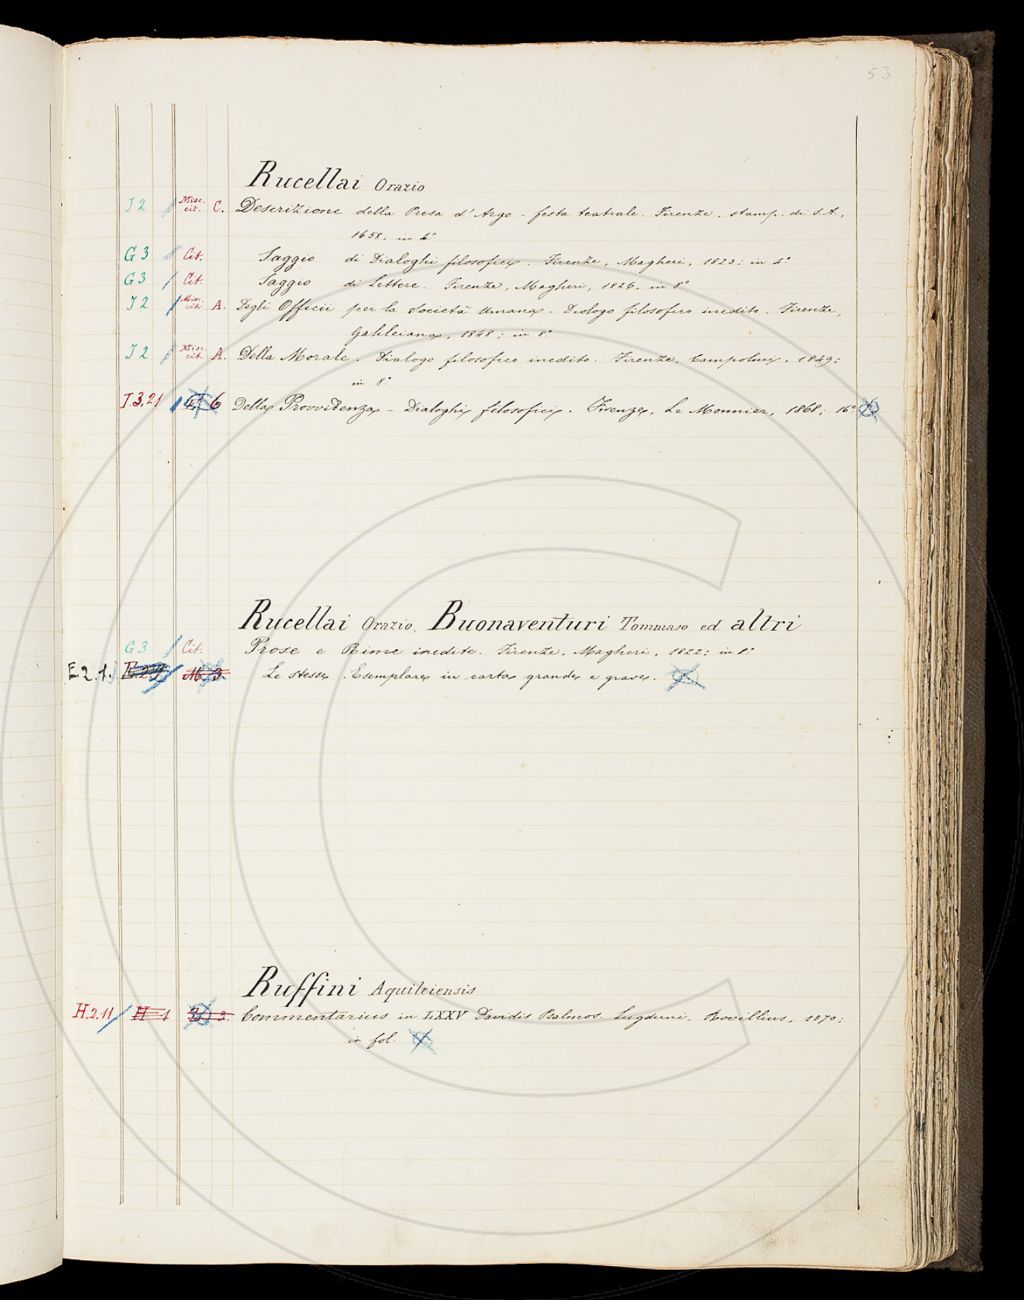 53
Rucellai Orazio
J 2 Misc. cit. C. Descrizione della Presa d'Argo - festa teatrale. Firenze, stamp. di S.A.,
1658; in 4°
G 3 Cit. Saggio di Dialoghi filosofici. Firenze, Magheri, 1823; in 4°
G 3 Cit. Saggio di Lettere. Firenze, Magheri, 1826, in 8°
J 2 Misc. cit. A. Degli Officii per la Società Umana - Dialogo filosofico inedito. Firenze,
Galileiana, 1848; in 8°
J 2 Misc. cit. A. Della Morale. Dialogo filosofico inedito. Firenze, Campolmi, 1849;
in 8°
I.3.21 6 Della Provvidenza - Dialoghi filosofici. Firenze, Le Monnier, 1868; 16°
Rucellai Orazio, Buonaventuri Tommaso ed altri
G 3 Cit. Prose e Rime inedite. Firenze, Magheri, 1822; in 8°
E 2.1. M 3. Le stesse. Esemplare in carta grande e grave.
Ruffini Aquileiensis
H.2.11 H 1 Commentarius in LXXV Davidis Psalmos. Lugduni, Rovillius, 1570;
in fol.